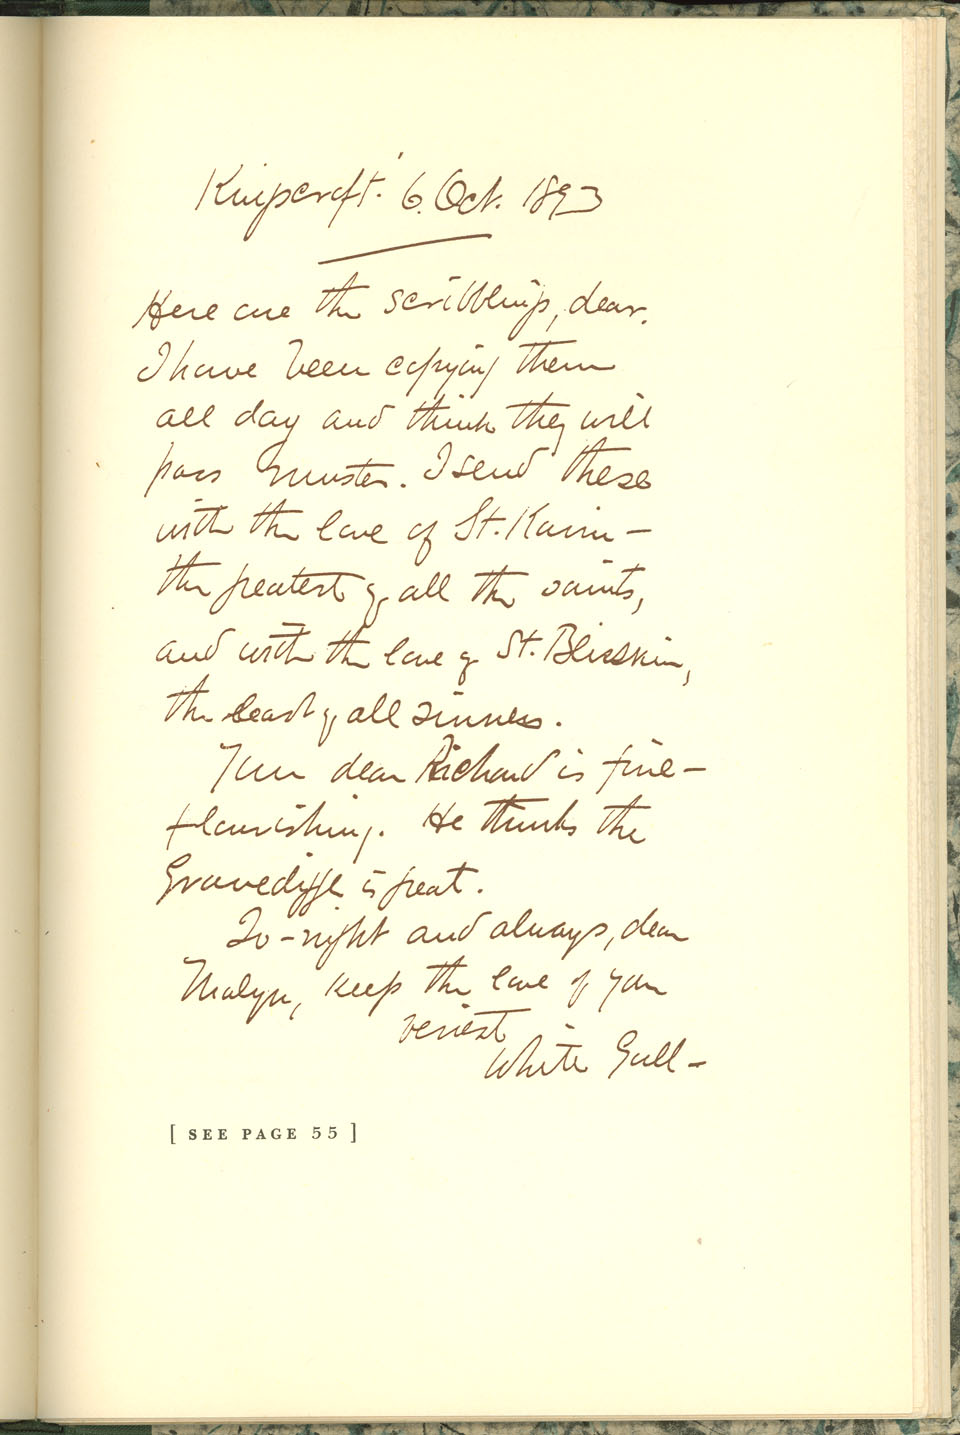 Kingscroft. 6. Oct. 1893
Here are the scribblings, dear.
I have been copying them
all day and think they will
pass muster. I send these
with the love of St. Kavin –
the greatest of all the saints,
and with the love of St. Blisskin,
the least of all sinners.
Your dear Richard is fine –
flourishing. He thinks the
Gravedigger is great.
To-night and always, dear
Malyn, keep the love of your
veriest
White Gull –
[ SEE PAGE 55 ]